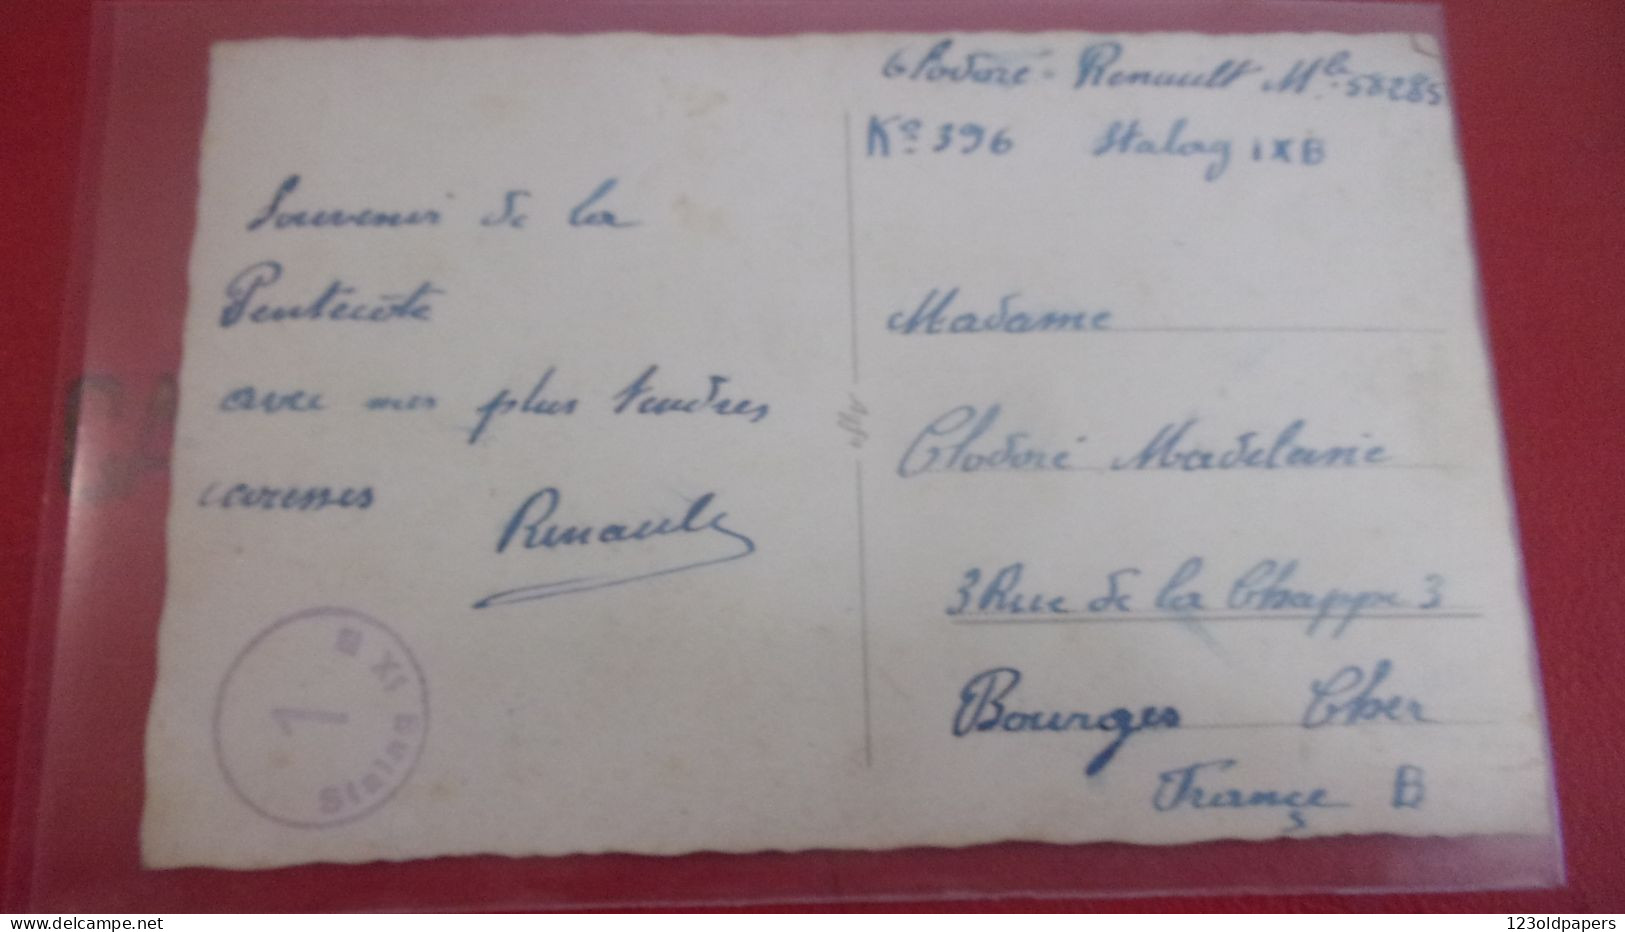 Clodoré - Renault Mle 58285
Ko 396 Stalag IXB
Souvenir de la
Pentecôte
avec mes plus tendres
caresses
Renault
Madame
Clodoré Madeleine
3 Rue de la Chappe 3
Bourges Cher
France B
Stalag IX B
1
www.delcampe.net
123oldpapers